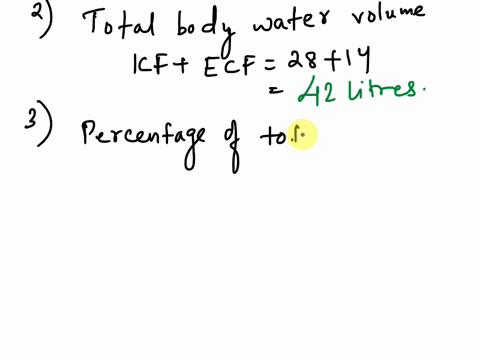 2) Total body water volume
ICF + ECF = 28 + 14
= 42 litres.
3) Percentage of tot